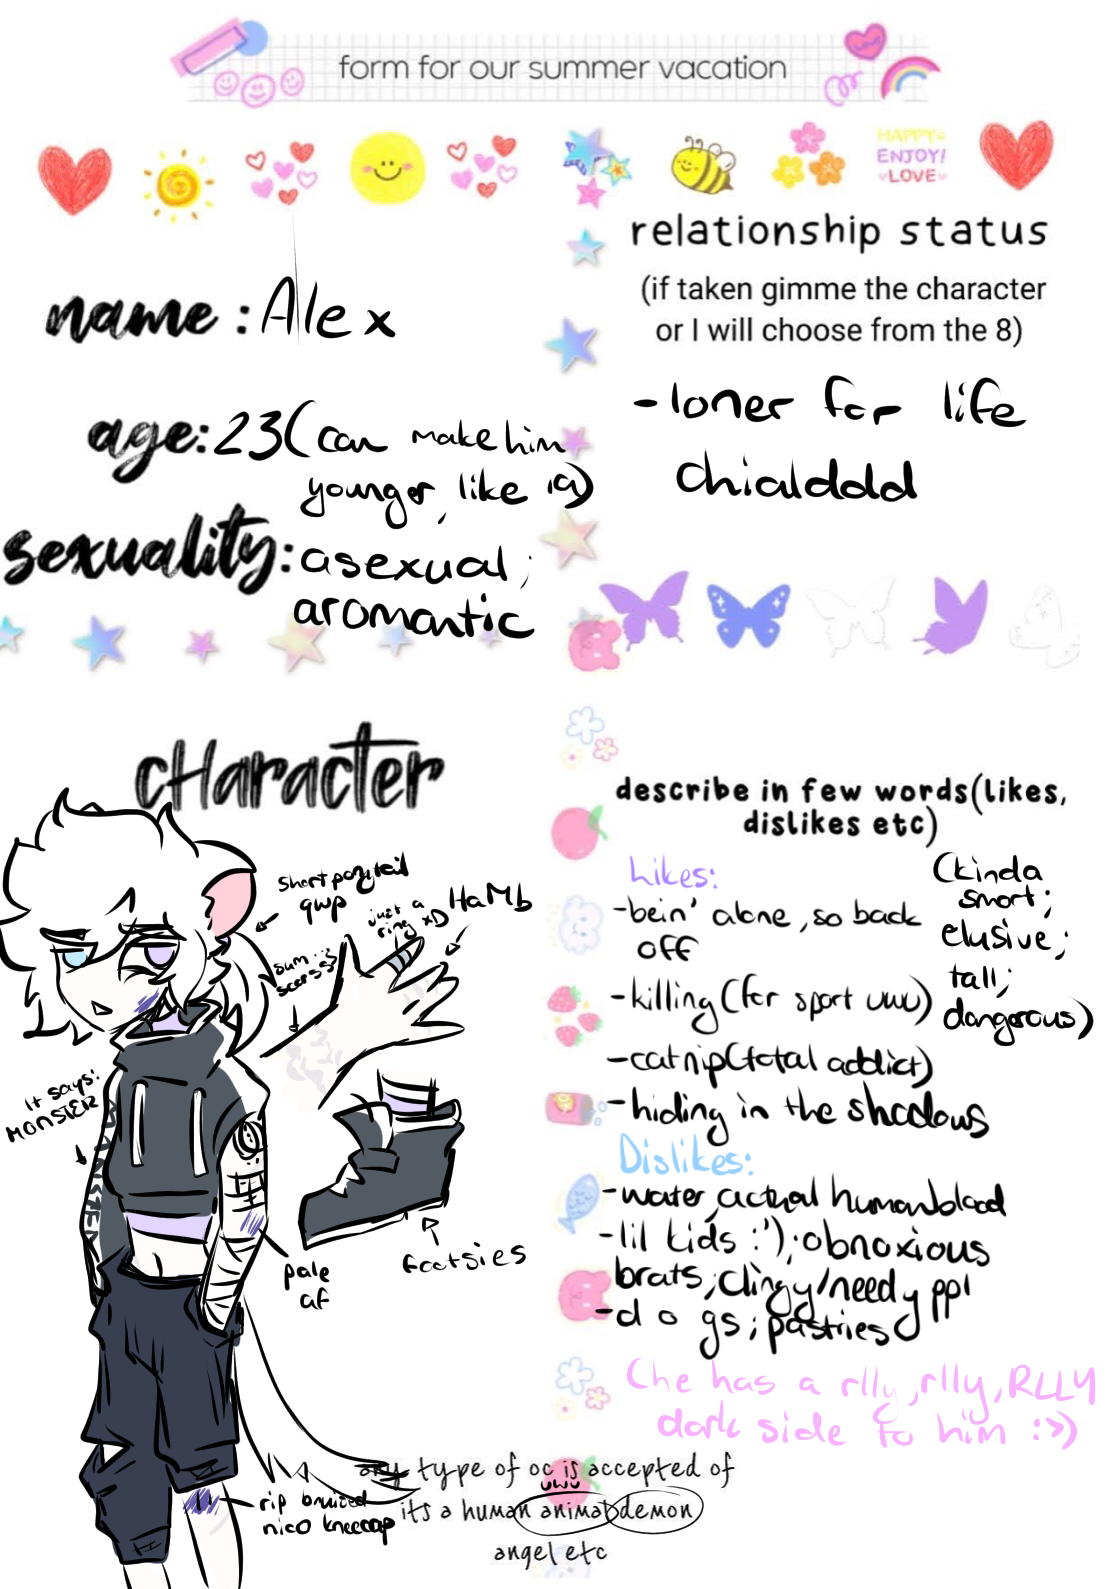 form for our summer vacation
Love
HAPPY
ENJOY!
LOVE
name : Alex
age: 23 (can make him
younger, like 19)
sexuality: asexual;
aromantic
relationship status
(if taken gimme the character
or I will choose from the 8)
- loner for life
chialddd
cHaracter
short ponytail
qwp
just a
ring xD
HaMb
sum
scarsss
It says:
MONSTER
footsies
pale
af
rip bruiced
nico kneecap
describe in few words(likes,
dislikes etc)
Likes:
-bein' alone, so back
off
-killing (for sport uwu)
-catnip(total addict)
-hiding in the shadows
(kinda
smart;
elusive;
tall;
dangerous)
Dislikes:
-water, actual human blood
-lil kids :'); obnoxious
brats; clingy/needy ppl
-dogs; pastries
(he has a rlly, rlly, RLLY
dark side to him :>)
any type of oc is accepted of
uwu
its a human animal demon
angel etc